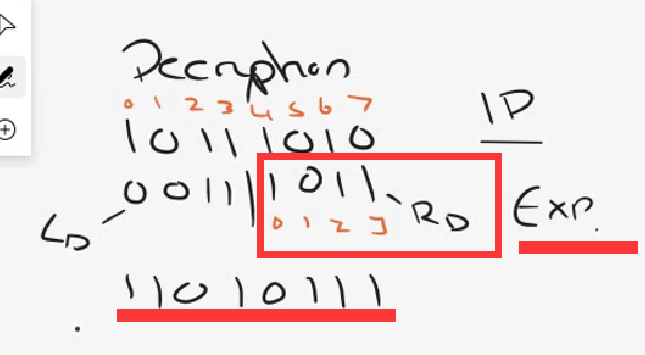 Decryption
0 1 2 3 4 5 6 7
1 0 1 1 1 0 1 0 IP
0 0 1 1 | 1 0 1 1 Exp.
LD 0 1 2 3 RD
1 1 0 1 0 1 1 1